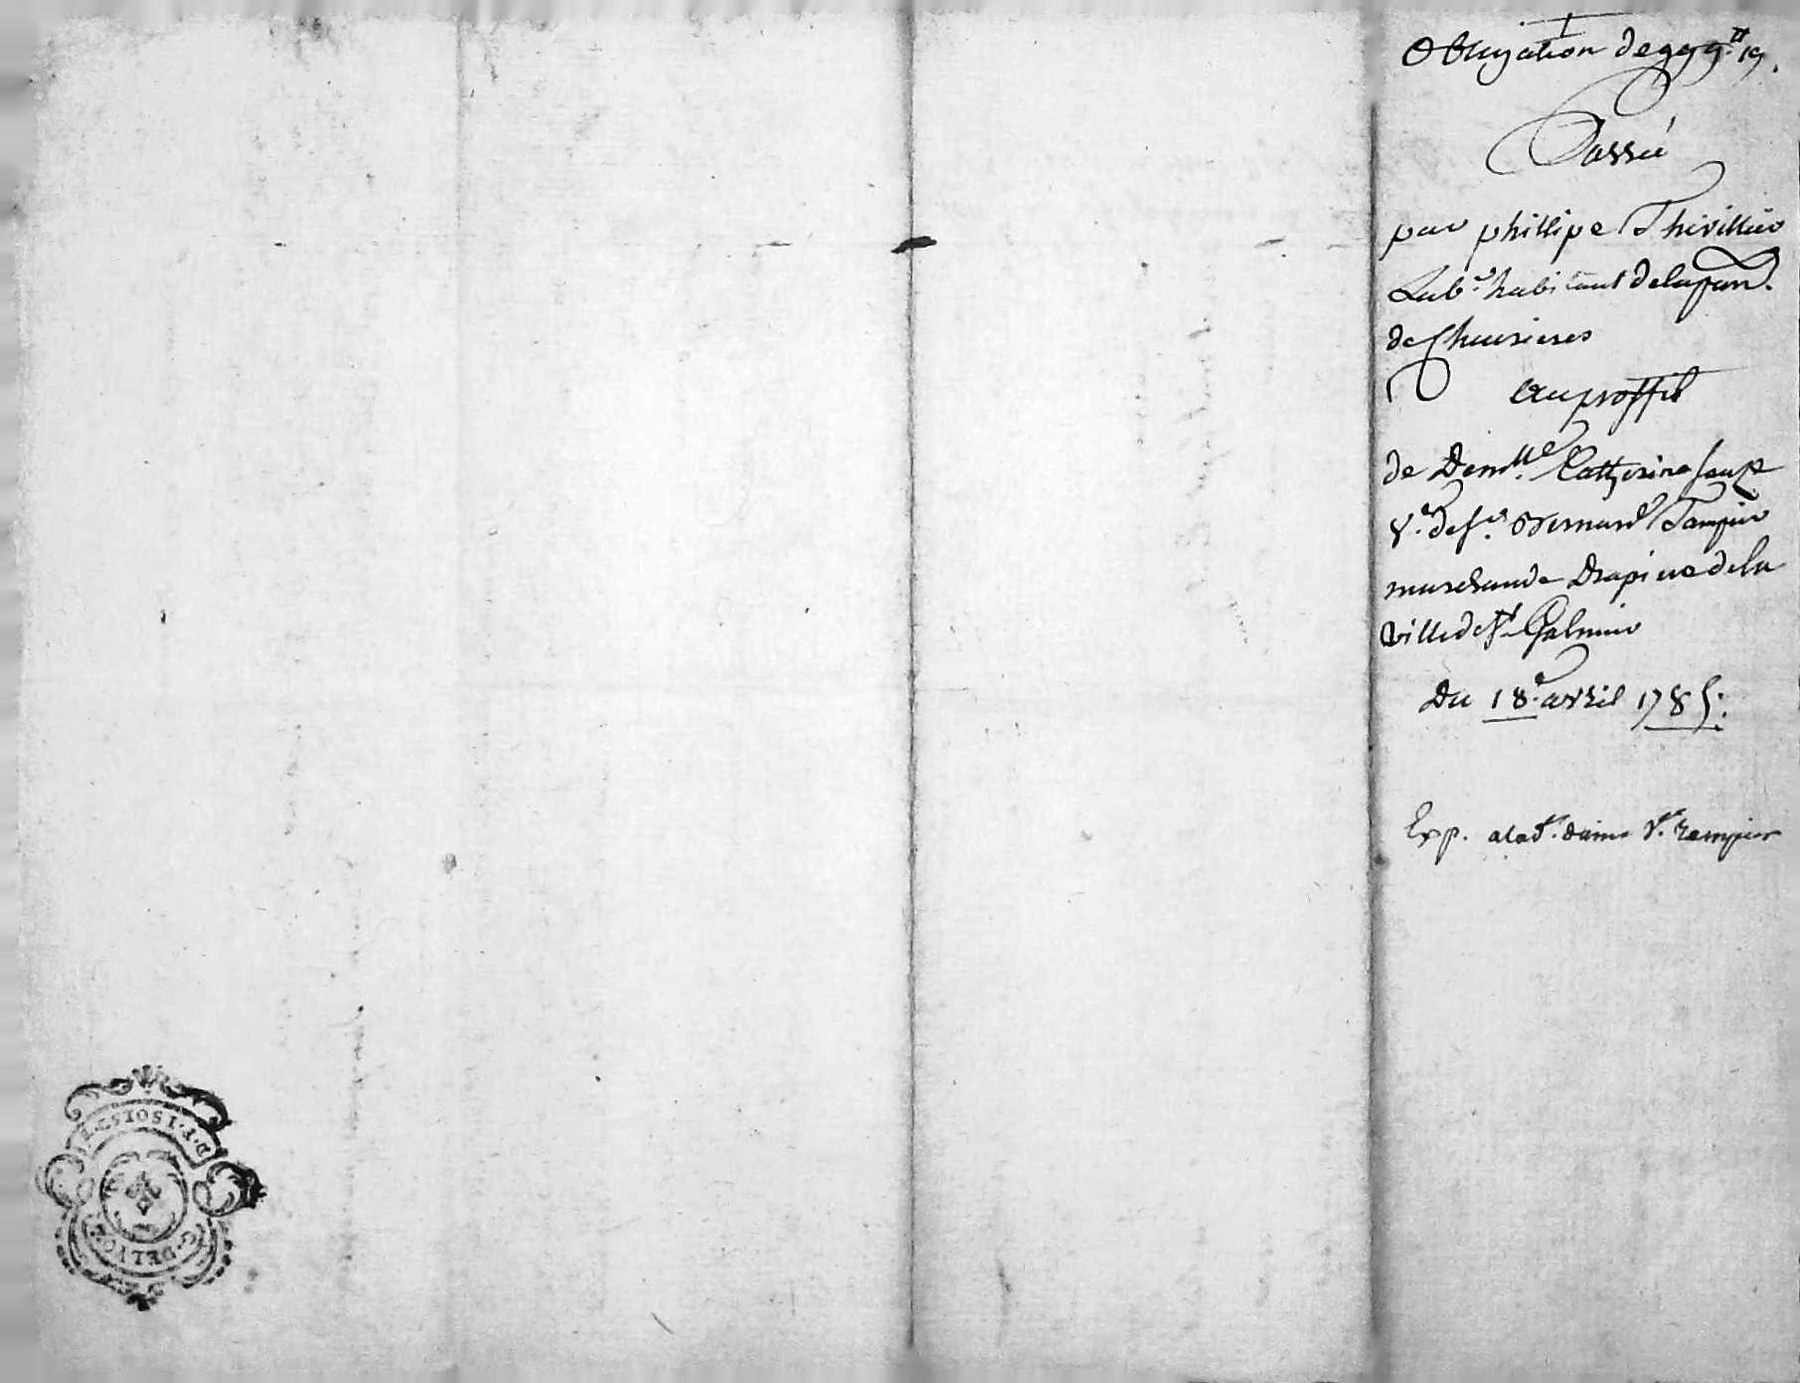 Obligation de 999.₶ 19.
Passée
par phillipe Thivillier
Lab.r habitant de la parr.
de Chevrieres
au proffit
de Dem.lle Catherine
V.e de f.u Bernard Tampier
marchande Drapiere de la
ville de S.t Galmier
Du 18.e avril 1785:
Exp. a la d.te dame V.e Tempier
5 SIOSI.P.D
G.DE LYON